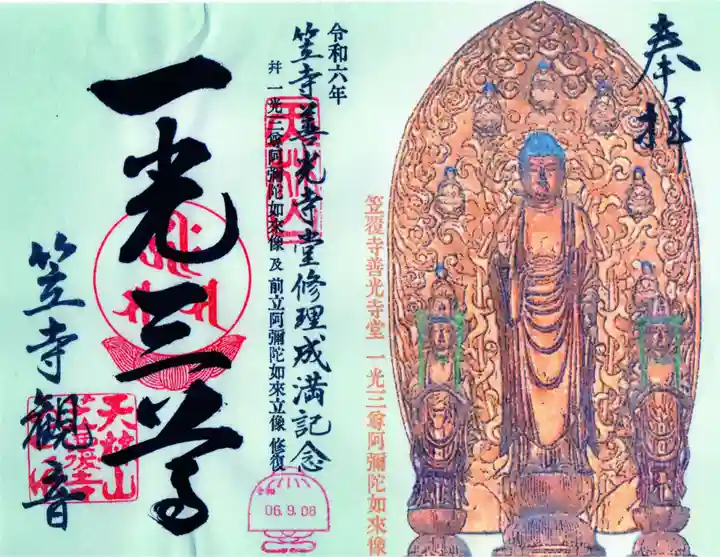 奉拝
笠覆寺善光寺堂 一光三尊阿彌陀如来像
令和六年
笠寺善光寺堂修理成満記念
并 一光三尊阿彌陀如來像 及 前立阿彌陀如來立像 修復
令和
06.9.08
一光三尊
笠寺観音
天林山
笠覆寺